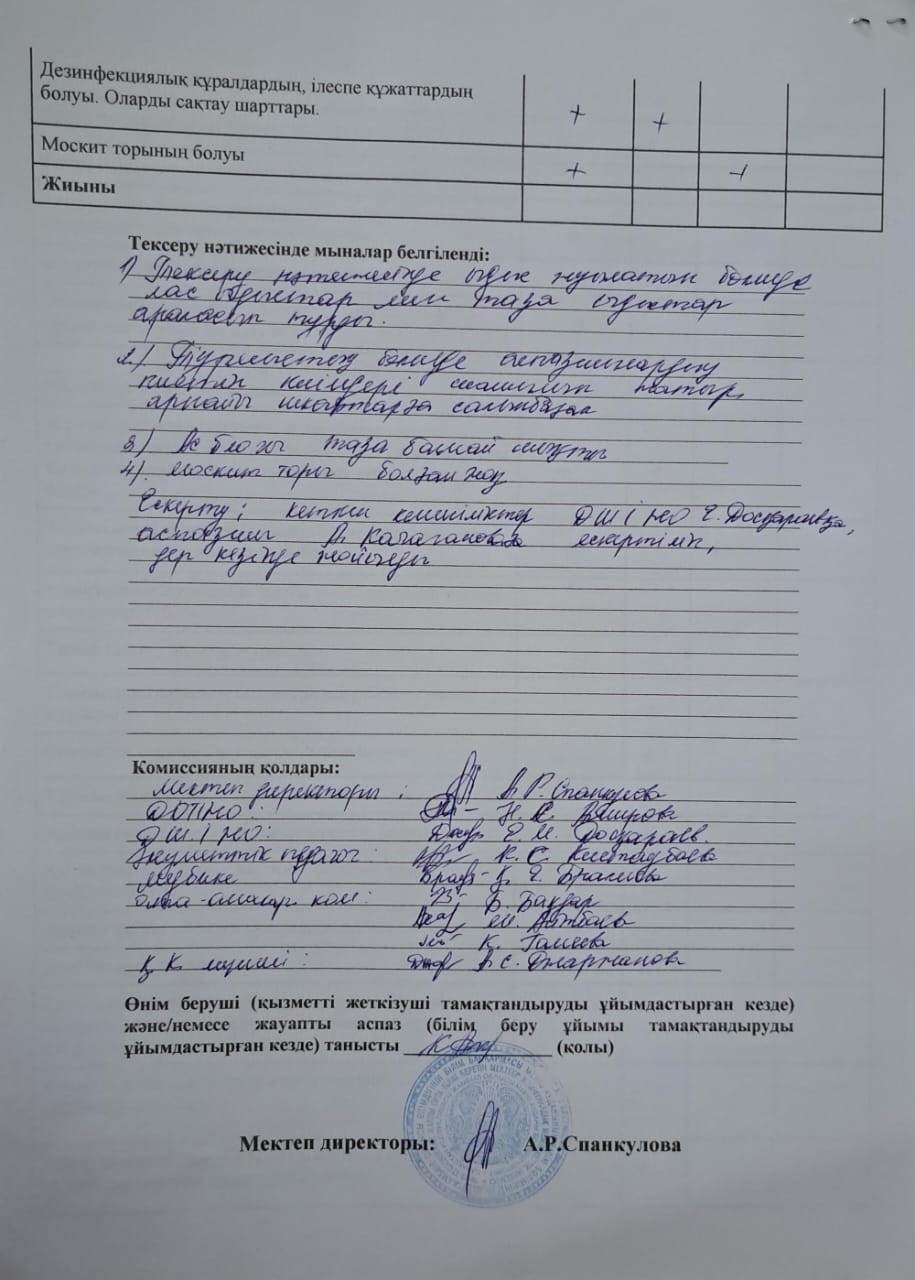 Дезинфекциялық құралдардың, ілеспе құжаттардың
болуы. Оларды сақтау шарттары. + +
Москит торының болуы + +
Жиыны
Тексеру нәтижесінде мыналар белгіленді:
1) Тексеру нәтижесінде ыдыс жуылатын бөлімде
лас ыдыстар мен таза ыдыстар
араласып тұрды.
2.) Тұрмыстық бөлімде аспазшылардың
киетін киімдері шашылып жатыр,
арнайы шкафтарға салынбаған
3) Ас блогы таза болмай шықты
4). москит торы болған жоқ
Ескерту: кеткен кемшіліктер ДШІЖО Е. Досқараевқа,
аспазшы А. ескертіліп,
дер кезінде жойылды
Комиссияның қолдары:
Мектеп директоры: А.Р. Спанкулова
ДОТІЖО: Н.
ДШІЖО: Е. М. Досқараев.
педагог: К. С.
Медбике Қ. Е.
ата-аналар ком: Б. Бақдар
М.
К. Галиева
Қ.К. мүшесі: А.С. Джаржанова
Өнім беруші (қызметті жеткізуші тамақтандыруды ұйымдастырған кезде)
және/немесе жауапты аспаз (білім беру ұйымы тамақтандыруды
ұйымдастырған кезде) танысты (қолы)
Мектеп директоры: А.Р.Спанкулова